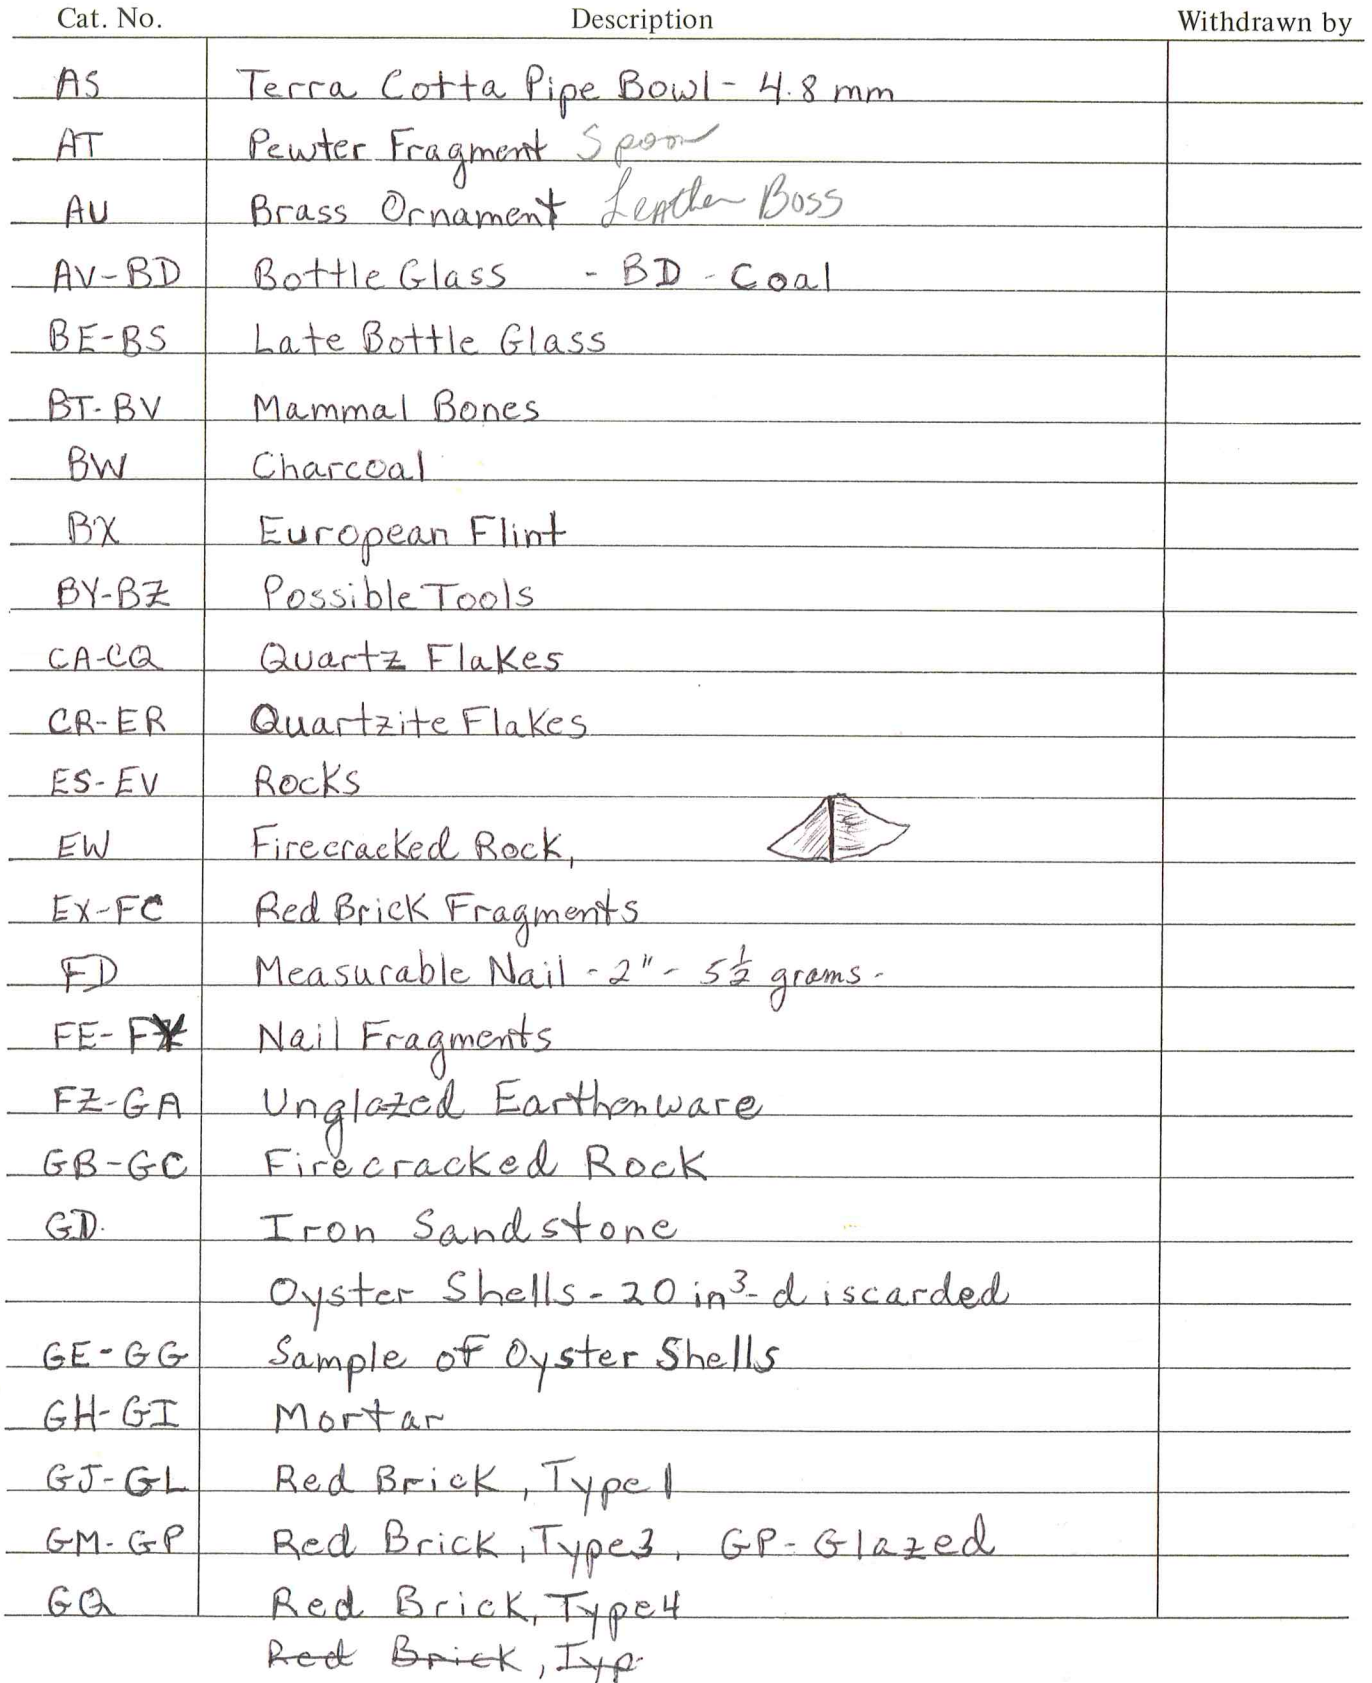 Cat. No. Description Withdrawn by
AS Terra Cotta Pipe Bowl - 4.8 mm
AT Pewter Fragment Spoon
AU Brass Ornament Leather Boss
AV-BD Bottle Glass - BD - Coal
BE-BS Late Bottle Glass
BT-BV Mammal Bones
BW Charcoal
BX European Flint
BY-BZ Possible Tools
CA-CQ Quartz Flakes
CR-ER Quartzite Flakes
ES-EV Rocks
EW Firecracked Rock,
EX-FC Red Brick Fragments
FD Measurable Nail - 2" - 5½ grams -
FE-FY Nail Fragments
FZ-GA Unglazed Earthenware
GB-GC Firecracked Rock
GD. Iron Sandstone
Oyster Shells - 20 in³ - discarded
GE-GG Sample of Oyster Shells
GH-GI Mortar
GJ-GL Red Brick, Type 1
GM-GP Red Brick, Type 3, GP-Glazed
GQ Red Brick, Type 4
Red Brick, Typ